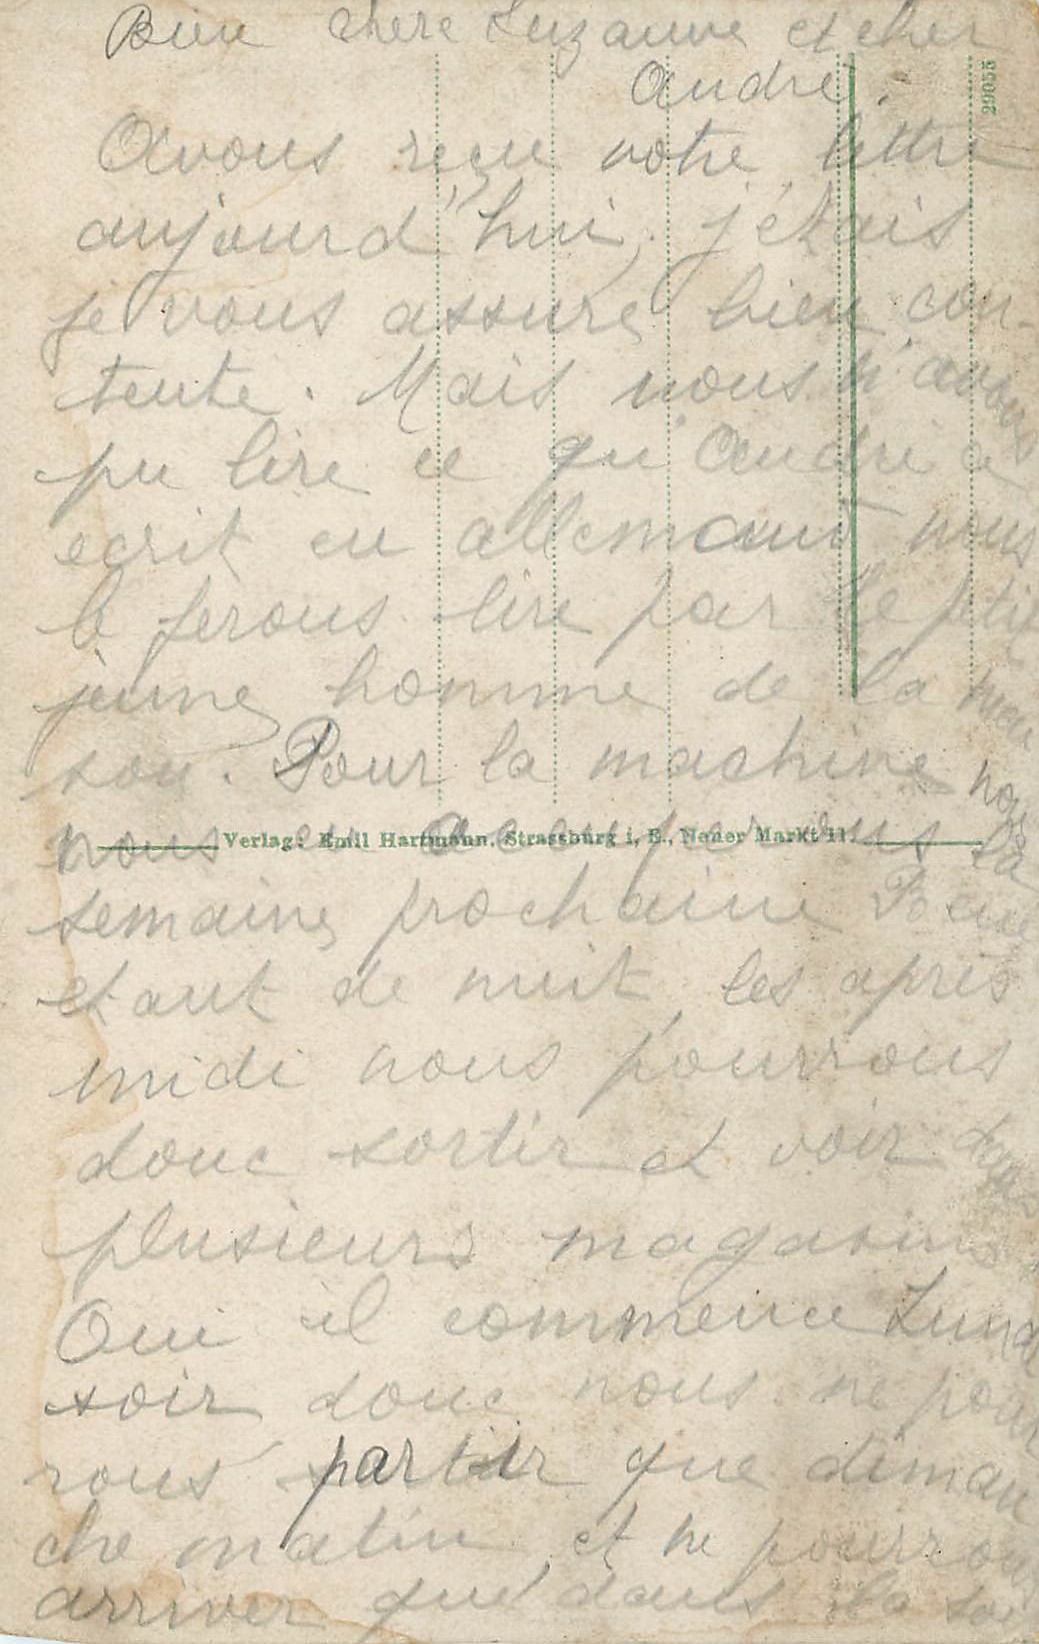 Bien chere Suzanne et cher
Andre.
29055
Avons reçu votre lettre
aujourd'hui, j'étais
je vous assure bien con-
tente. Mais nous n'avons
pu lire ce qu'André a
ecrit en allemant nous
le ferons lire par le petit
jeune homme de la mai
son. Pour la machine nous
nous en occuperons la
Verlag: Emil Hartmann, Strassburg i. E., Neuer Markt 11.
semaine prochaine
etant de nuit, les après
midi nous pourrons
donc sortir et voir dans
plusieurs magasins
Oui il commence Lundi
soir donc nous ne pour
rons partir que diman
che matin, et ne pourrons
arriver que dans la soi